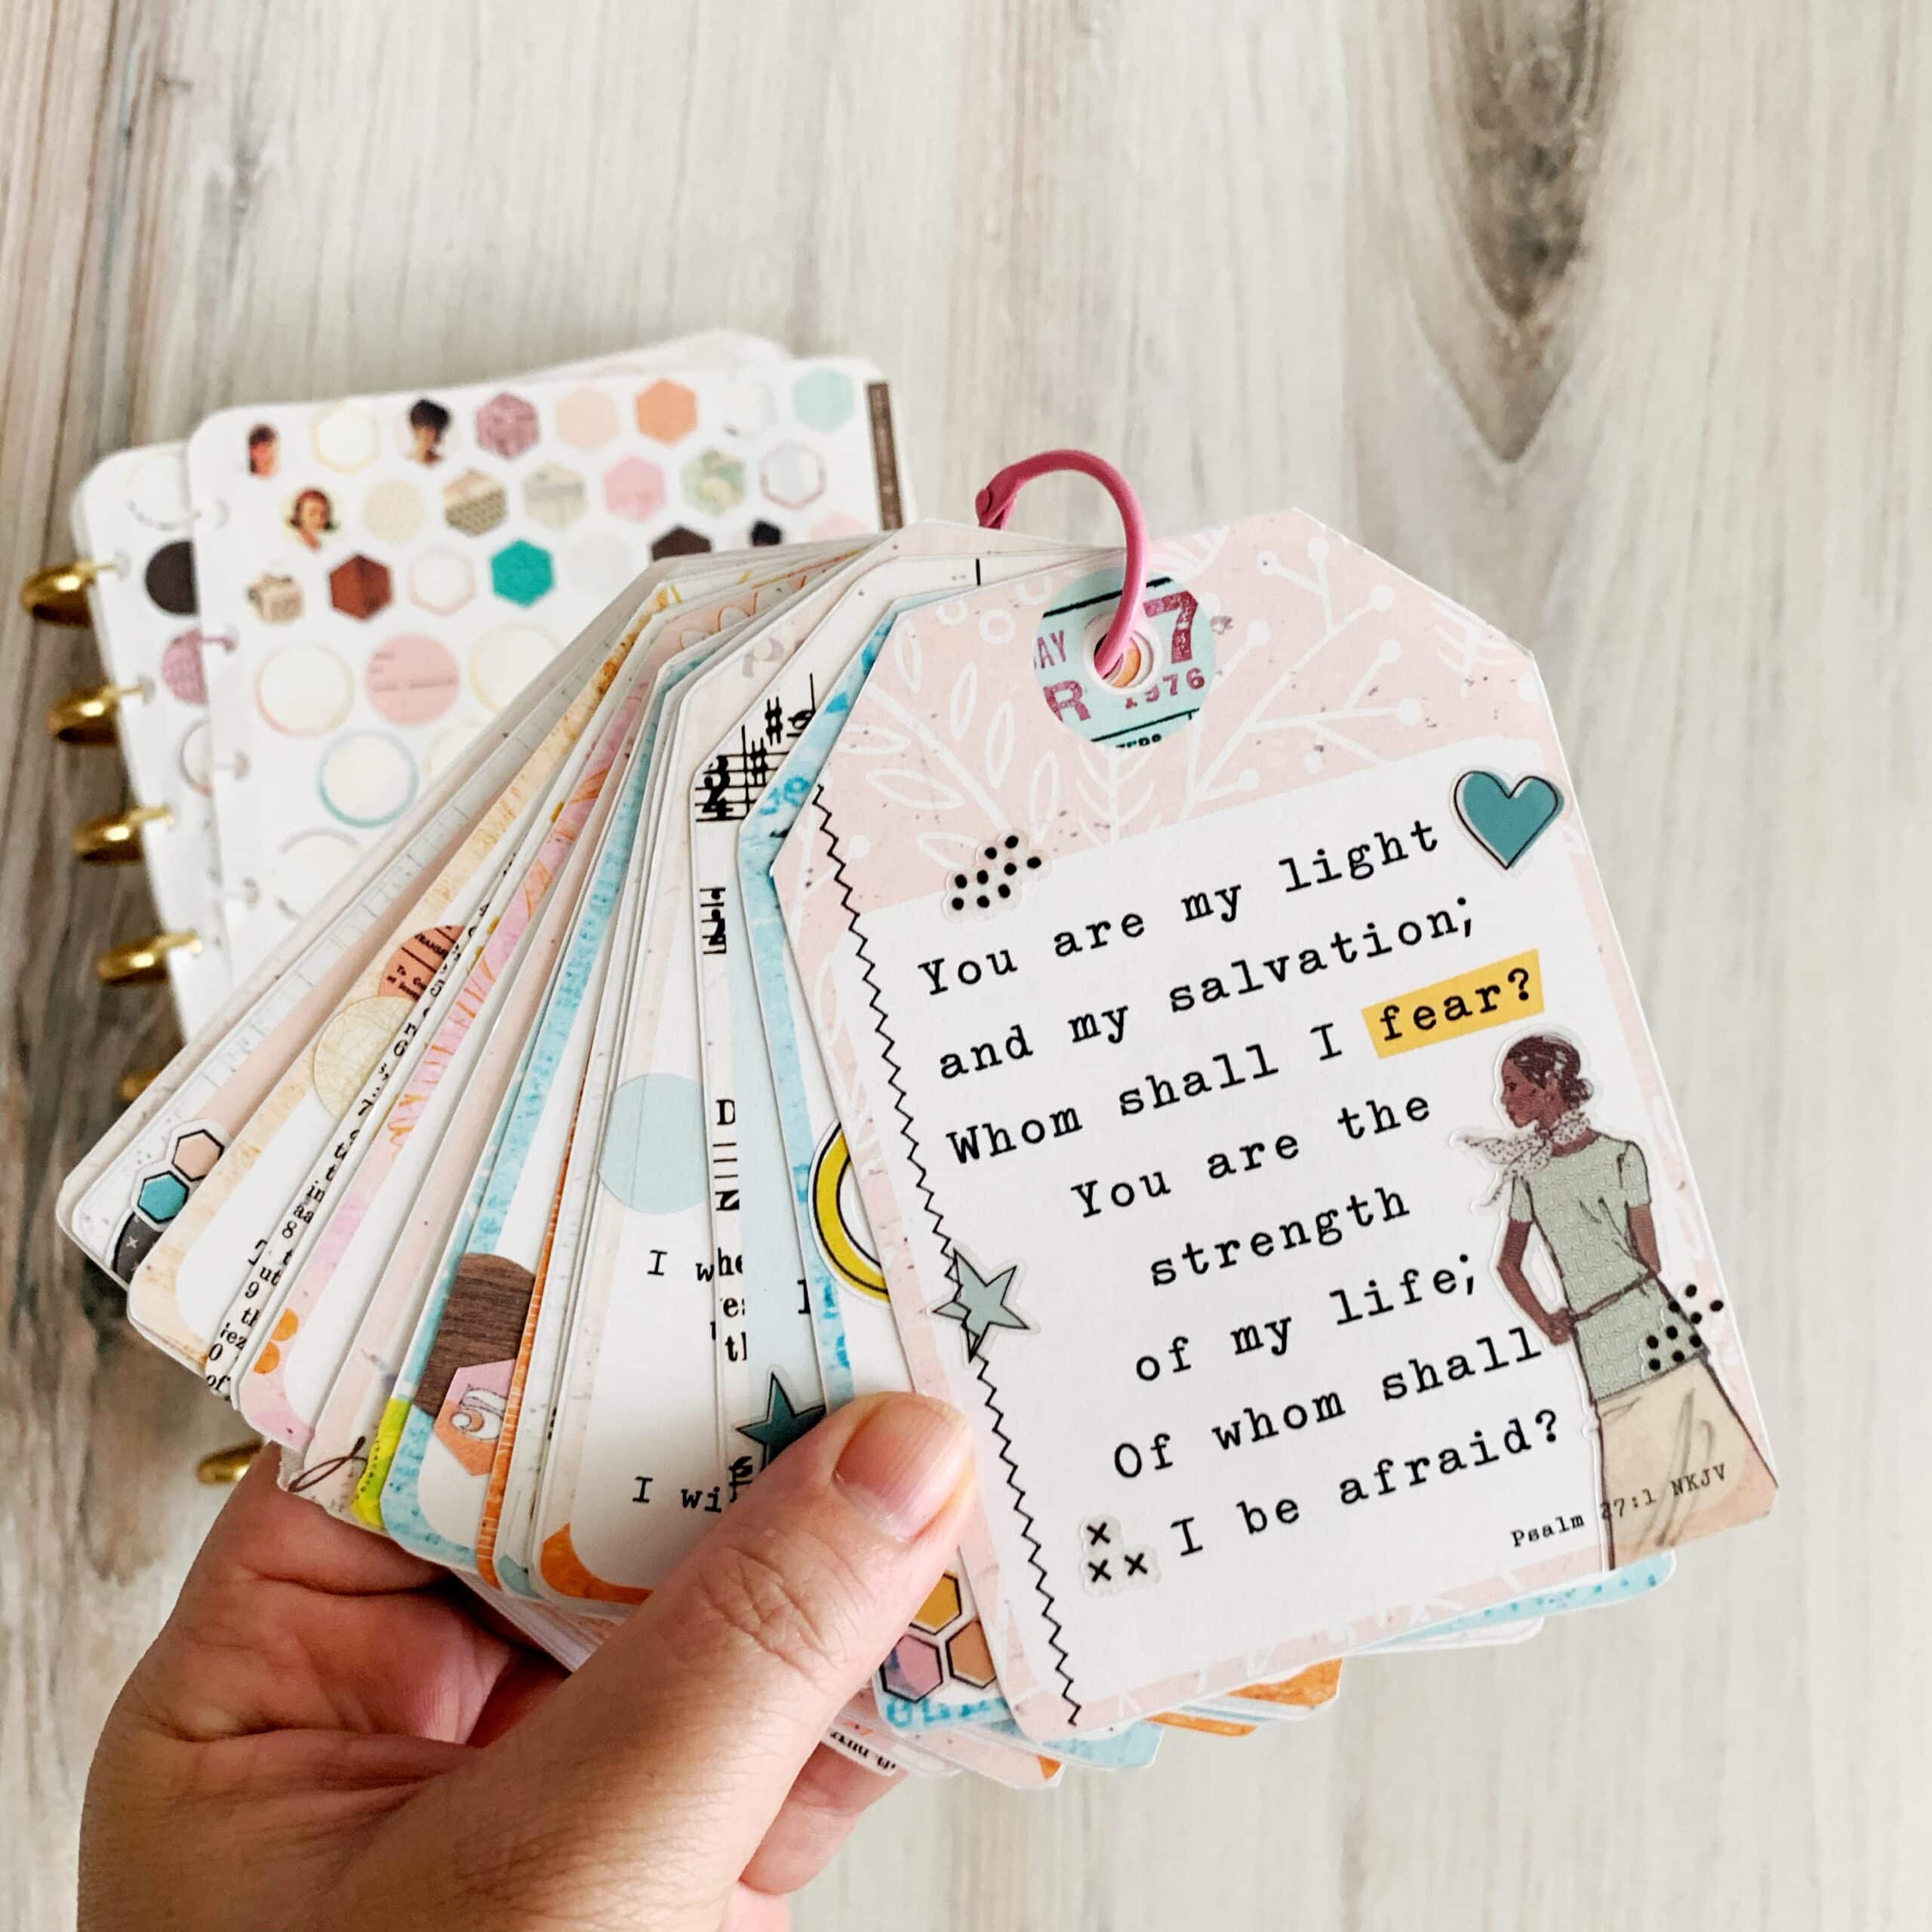 AY 7
R 1976
You are my light
and my salvation;
Whom shall I fear?
You are the
strength
of my life;
Of whom shall
I be afraid?
x
x x
Psalm 27:1 NKJV
I whe
I wi
5